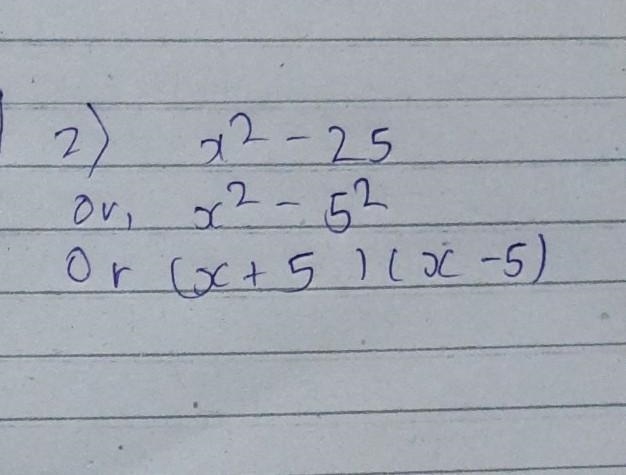 2) x² - 25
or, x² - 5²
Or (x + 5 ) ( x - 5)